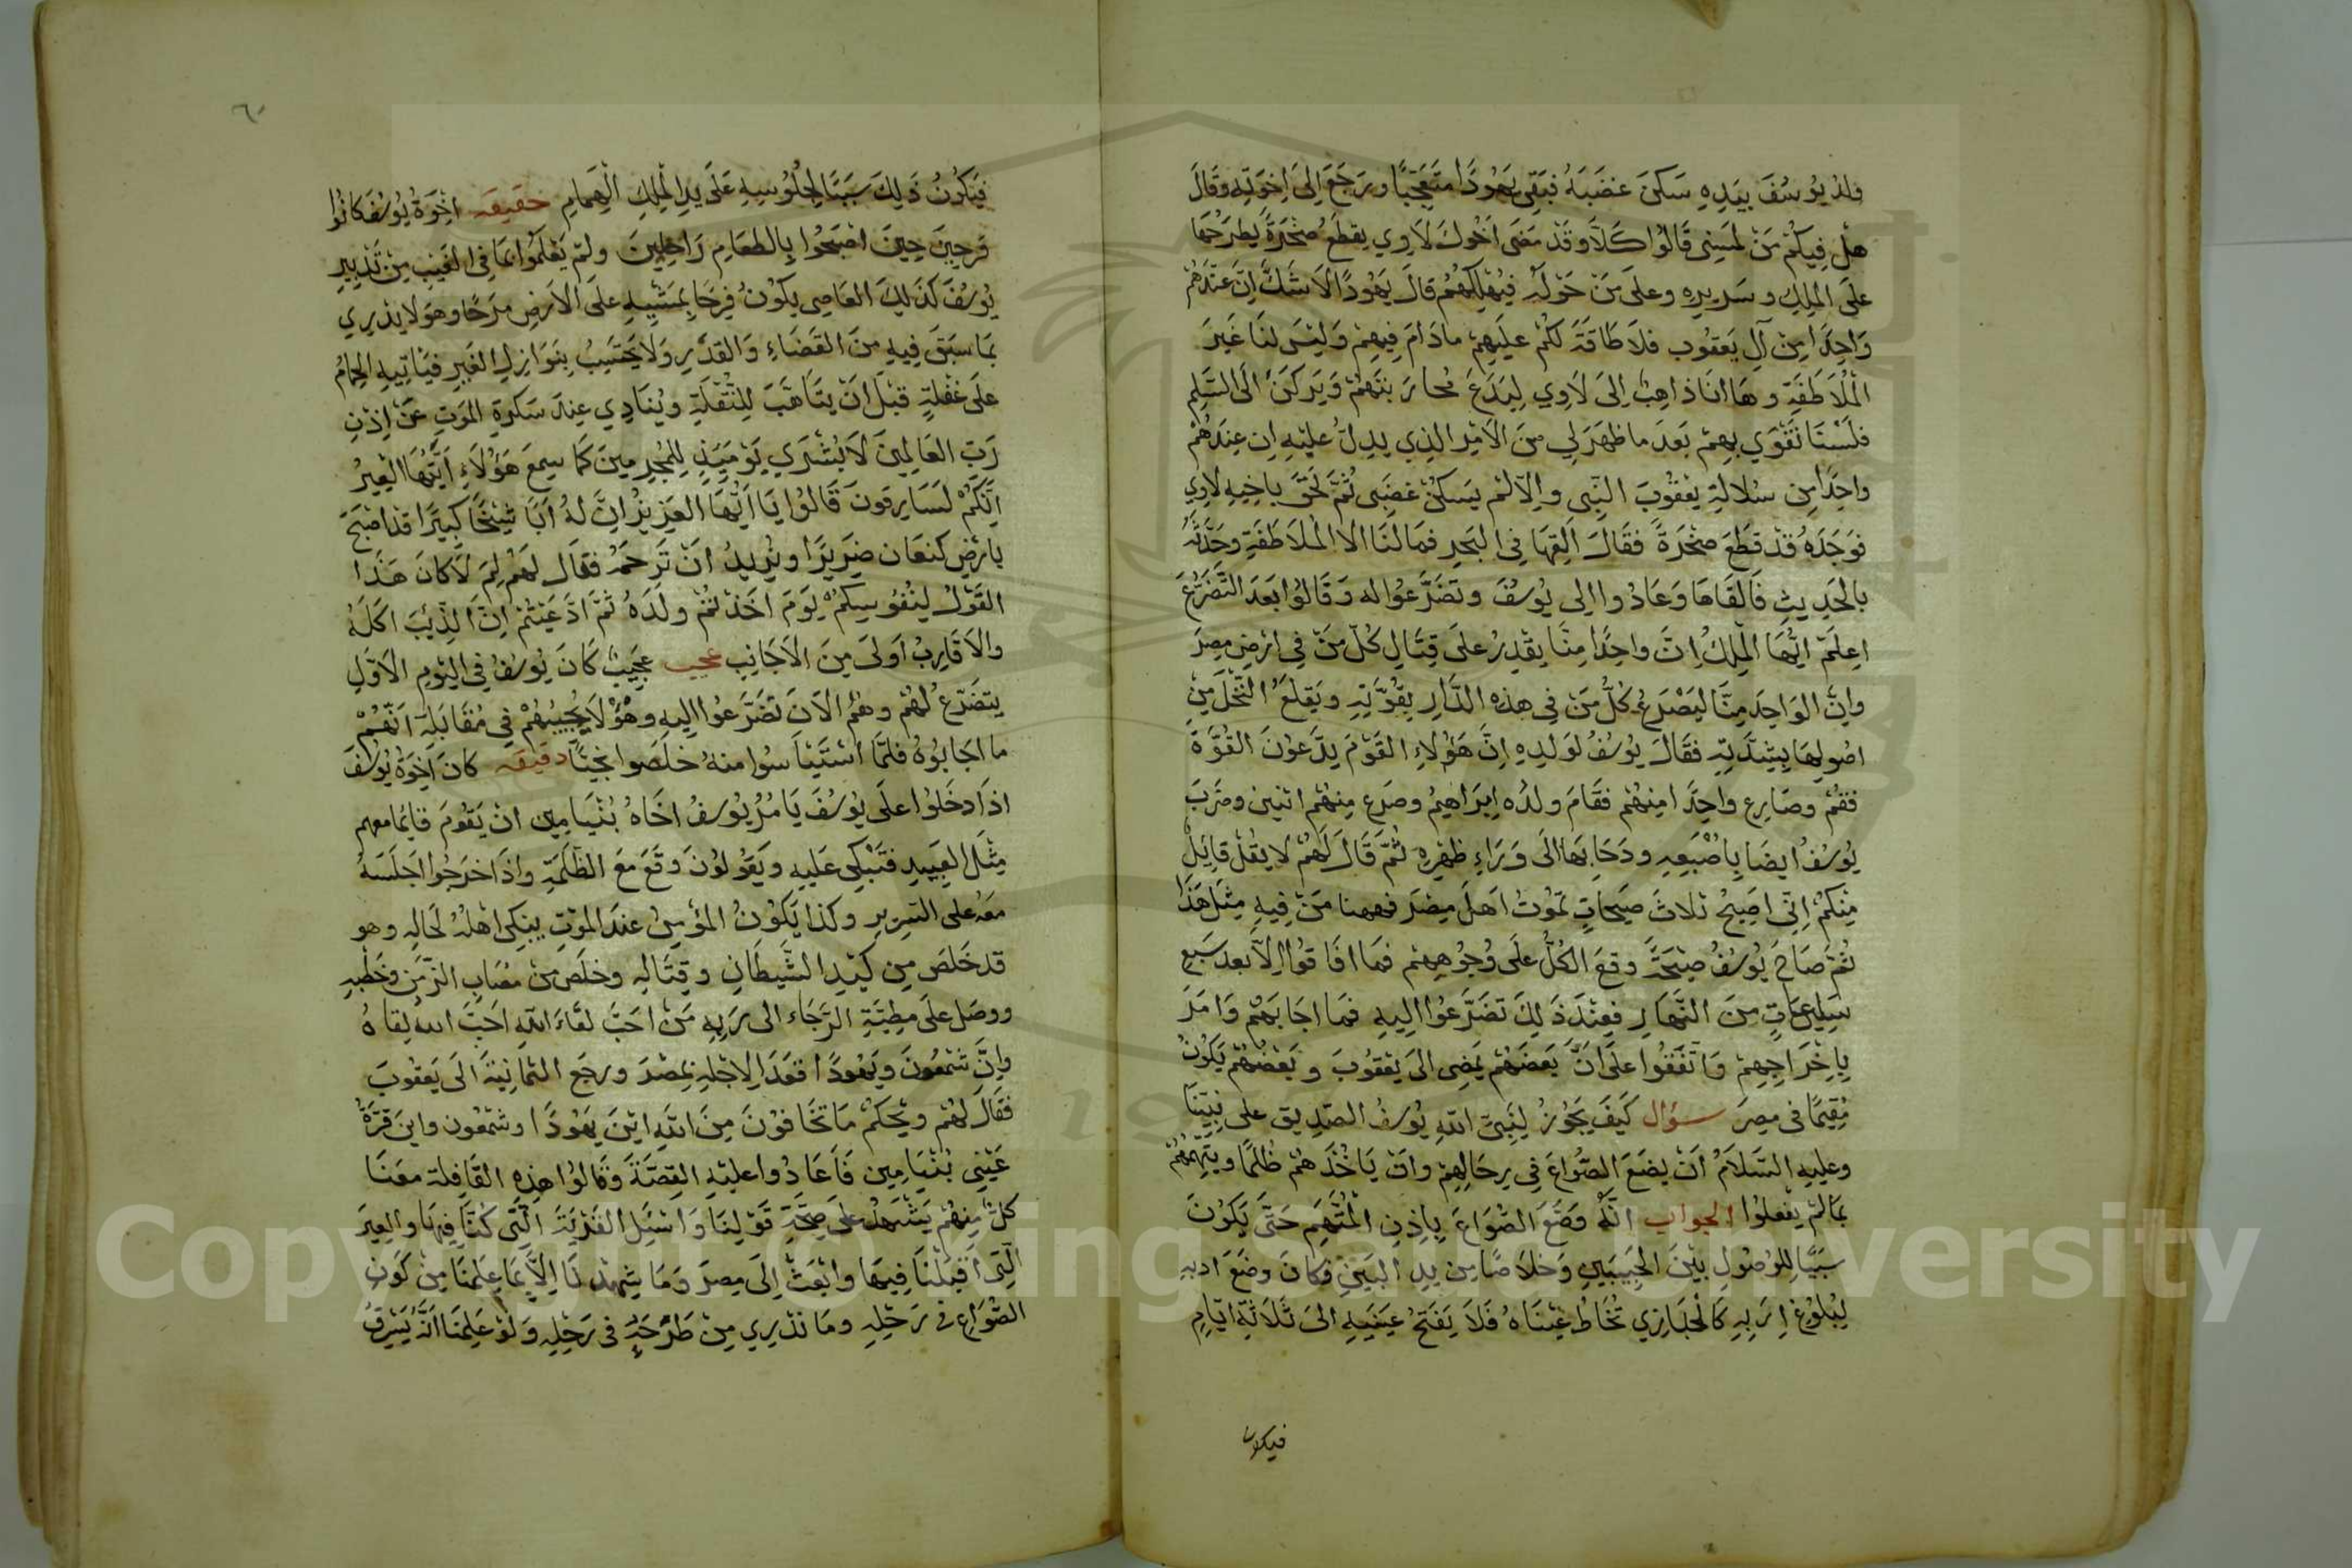 ولد يوسف بيده سكن غضبه فبقى يهودا متعجبا ورجع الى اخوته وقال
هل فيكم من لمسني قالوا كلا وقد مضى اخوك لاوي يقطع صخرة يطرحها
على الملك وسريره وعلى من حوله فيهلكهم قال يهودا لا شك ان عندهم
واحدا من آل يعقوب فلا طاقة لكم عليهم مادام فيهم وليس لنا غير
الملاطفة وها انا ذاهب الى لاوي ليدع محاربتهم ويركن الى السلم
فلسنا نقوي بهم بعد ما ظهر لي من الامر الذي يدل عليه ان عندهم
واحدا من سلالة يعقوب النبي والا لم يسكن غضبي ثم لحق باخيه لاوي
فوجده قد قطع صخرة فقال القها في البحر فما لنا الا الملاطفة وحدثه
بالحديث فالقاها وعادوا الى يوسف وتضرعوا له وقالوا بعد التضرع
اعلم ايها الملك ان واحدا منا يقدر على قتال كل من في ارض مصر
وان الواحد منا ليصرع كل من في هذه الدار بقوته ويقلع النخل من
اصولها بشدته فقال يوسف لولده ان هؤلاء القوم يدعون القوة
فقم وصارع واحدا منهم فقام ولده ابراهيم وصرع منهم اثنين وضرب
يوسف ايضا باصبعه ودحا بها الى وراء ظهره ثم قال لهم لا يقل قايل
منكم اني اصيح ثلاث صيحات تموت اهل مصر فههنا من فيه مثل هذا
ثم صاح يوسف صيحة وقع الكل على وجوههم فما افاقوا الا بعد سبع
ساعات من النهار فعند ذلك تضرعوا اليه فما اجابهم وامر
باخراجهم واتفقوا على ان بعضهم يمضى الى يعقوب وبعضهم يكون
مقيما فى مصر سؤال كيف يجوز لنبي الله يوسف الصديق على نبينا
وعليه السلام ان يضع الصواع في رحالهم وان ياخذهم ظلما ويتهمهم
بما لم يفعلوا الجواب انه وضع الصواع باذن المتهم حتى يكون
سببا للوصول بين الحبيبين وخلاصا من يد البين وكان وضع ادبه
لبلوغ اربه كالبازي تخاط عيناه فلا يفتح عينيه الى ثلاثة ايام
فيكون
٦٠
فيكون ذلك سببا لجلوسه على يد الملك الهمام حقيقه اخوة يوسف كانوا
فرحين حين اصبحوا بالطعام راحلين ولم يعلموا بما فى الغيب من تدبير
يوسف كذلك العاصي يكون فرحا بمشيه على الارض مرحا وهو لا يدري
بما سبق فيه من القضاء والقدر ولا يحتسب بنوازل الغير فياتيه الحمام
على غفلة قبل ان يتاهب للنقلة وينادي عند سكرة الموت عن اذن
رب العالمين لا بشرى يومئذ للمجرمين كما سمع هؤلاء ايتها العير
انكم لسارقون قالوا يا ايها العزيز ان له ابا شيخا كبيرا قد اصبح
بارض كنعان ضريرا ويريد ان ترحمه فقال لهم لم لا كان هذا
القول لنفوسكم يوم اخذتم ولده ثم ادعيتم ان الذئب اكله
والاقارب اولى من الاجانب عجيب عجيب كان يوسف في اليوم الاول
يتضرع لهم وهم الان تضرعوا اليه وهو لا يجيبهم في مقابلة انهم
ما اجابوه فلما استيئاسوا منه خلصوا نجيا دقيقه كان اخوة يوسف
اذا دخلوا على يوسف يامر يوسف اخاه بنيامين ان يقوم قايما معهم
مثل العبيد فتبكي عليه ويقولون وقع مع الظلمة واذا خرجوا اجلسه
معه على السرير وكذا يكون المؤمن عند الموت يبكى اهله لحاله وهو
قد خلص من كيد الشيطان وقتاله وخلص من مصاب الزمن وخطبه
ووصل على مطية الرجاء الى ربه من احب لقاء الله احب الله لقاه
وان شمعون ويهودا قعدا لاجله بمصر ورجع الثمانية الى يعقوب
فقال لهم ويحكم ما تخافون من الله اين يهودا وشمعون واين قرة
عيني بنيامين فاعادوا عليه القصة وقالوا هذه القافلة معنا
كل منهم يشهد على صحة قولنا واسئل القرية التى كنا فيها والعير
التى اقبلنا فيها وابعث الى مصر وما شهدنا الا بما علمنا من كون
الصواع فى رحله وما ندري من طرحه فى رحله ولو علمنا انه يسرق